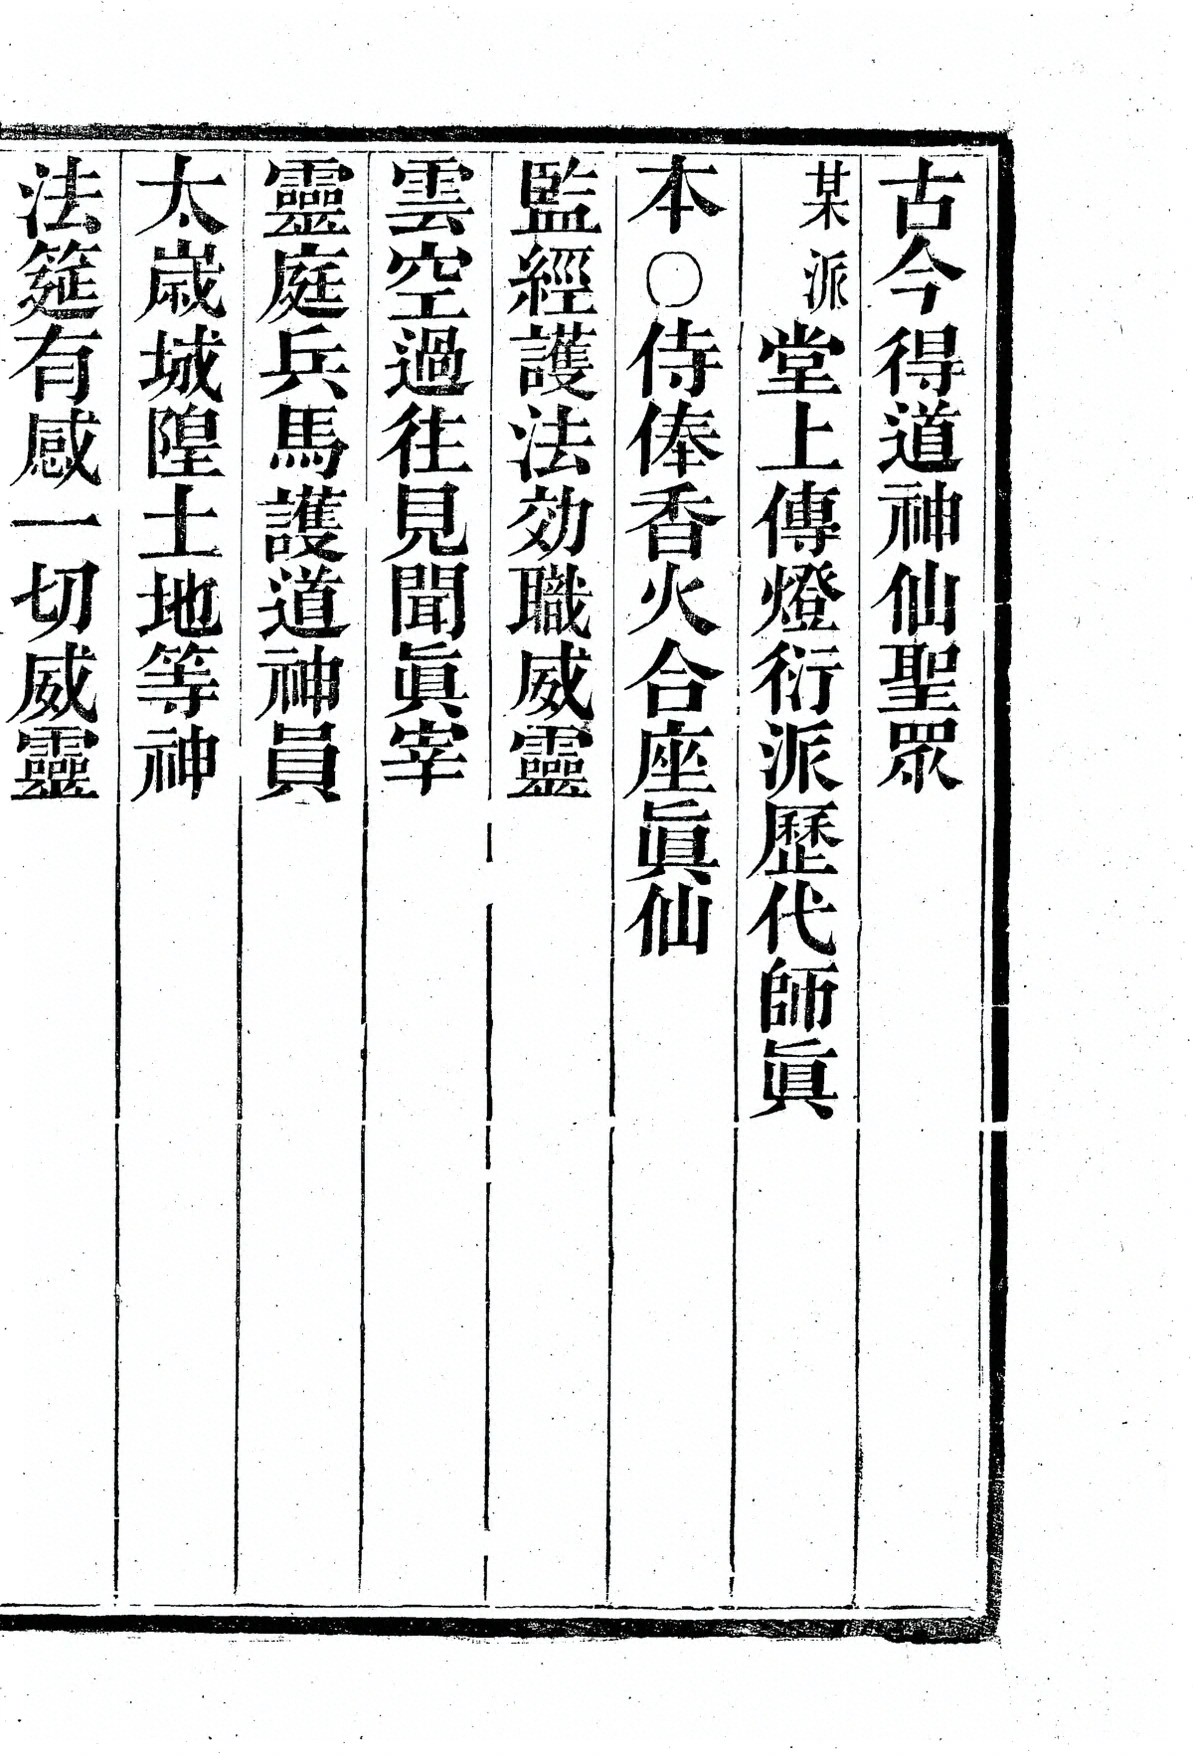 古今得道神仙聖眾
某派堂上傳燈衍派歷代師眞
本○侍俸香火合座眞仙
監經護法効職威靈
雲空過往見聞眞宰
靈庭兵馬護道神員
太歳城隍土地等神
法筵有感一切威靈